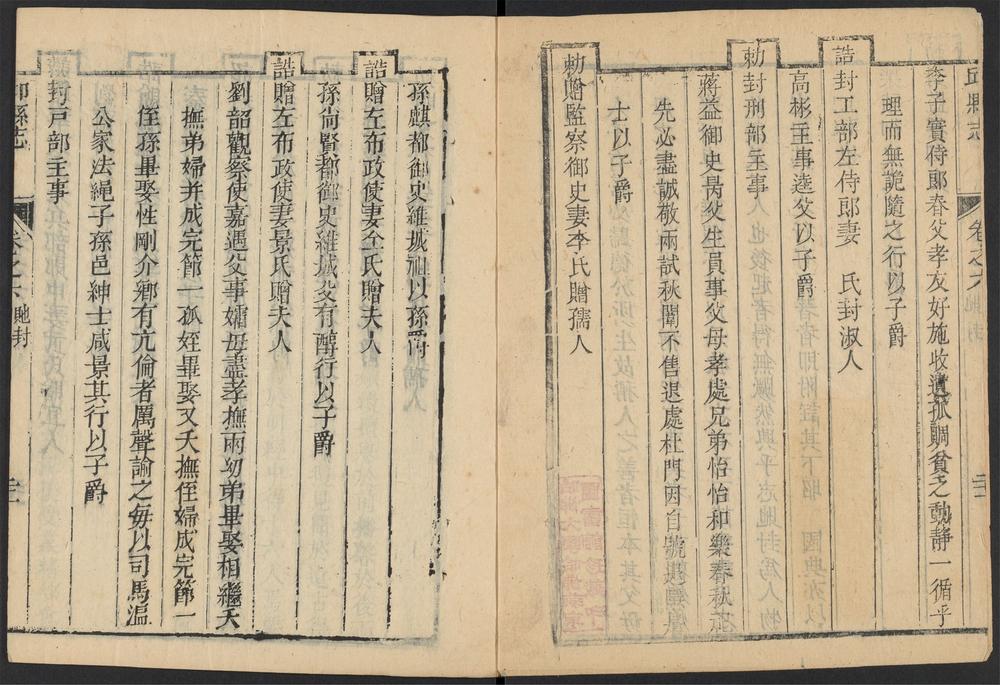 李子實侍郎春父孝友好施收遺孤賙貧乏動靜一循乎
理而無詭隨之行以子爵
誥封工部左侍郎妻　氏封淑人
高彬主事逵父以子爵
勅封刑部主事
蔣益御史昜父生員事父母孝處兄弟怡怡和樂春秋祀
先必盡誠敬兩試秋闈不售退處杜門因自號退
士以子爵
勅贈監察御史妻李氏贈孺人
孫麒都御史維城祖以孫爵
誥贈左布政使妻仝氏贈夫人
孫尚賢都御史維城父有醇行以子爵
誥贈左布政使妻景氏贈夫人
劉韶觀察使嘉遇父事孀母盡孝撫兩幼弟畢娶相繼夭
撫弟婦并成完節一孤姪畢娶又夭撫侄婦成完節一
侄孫畢娶性剛介鄉有亢倫者厲聲諭之每以司馬溫
公家法繩子孫邑紳士咸景其行以子爵
封戸部主事
邱縣志
卷之六
貤封